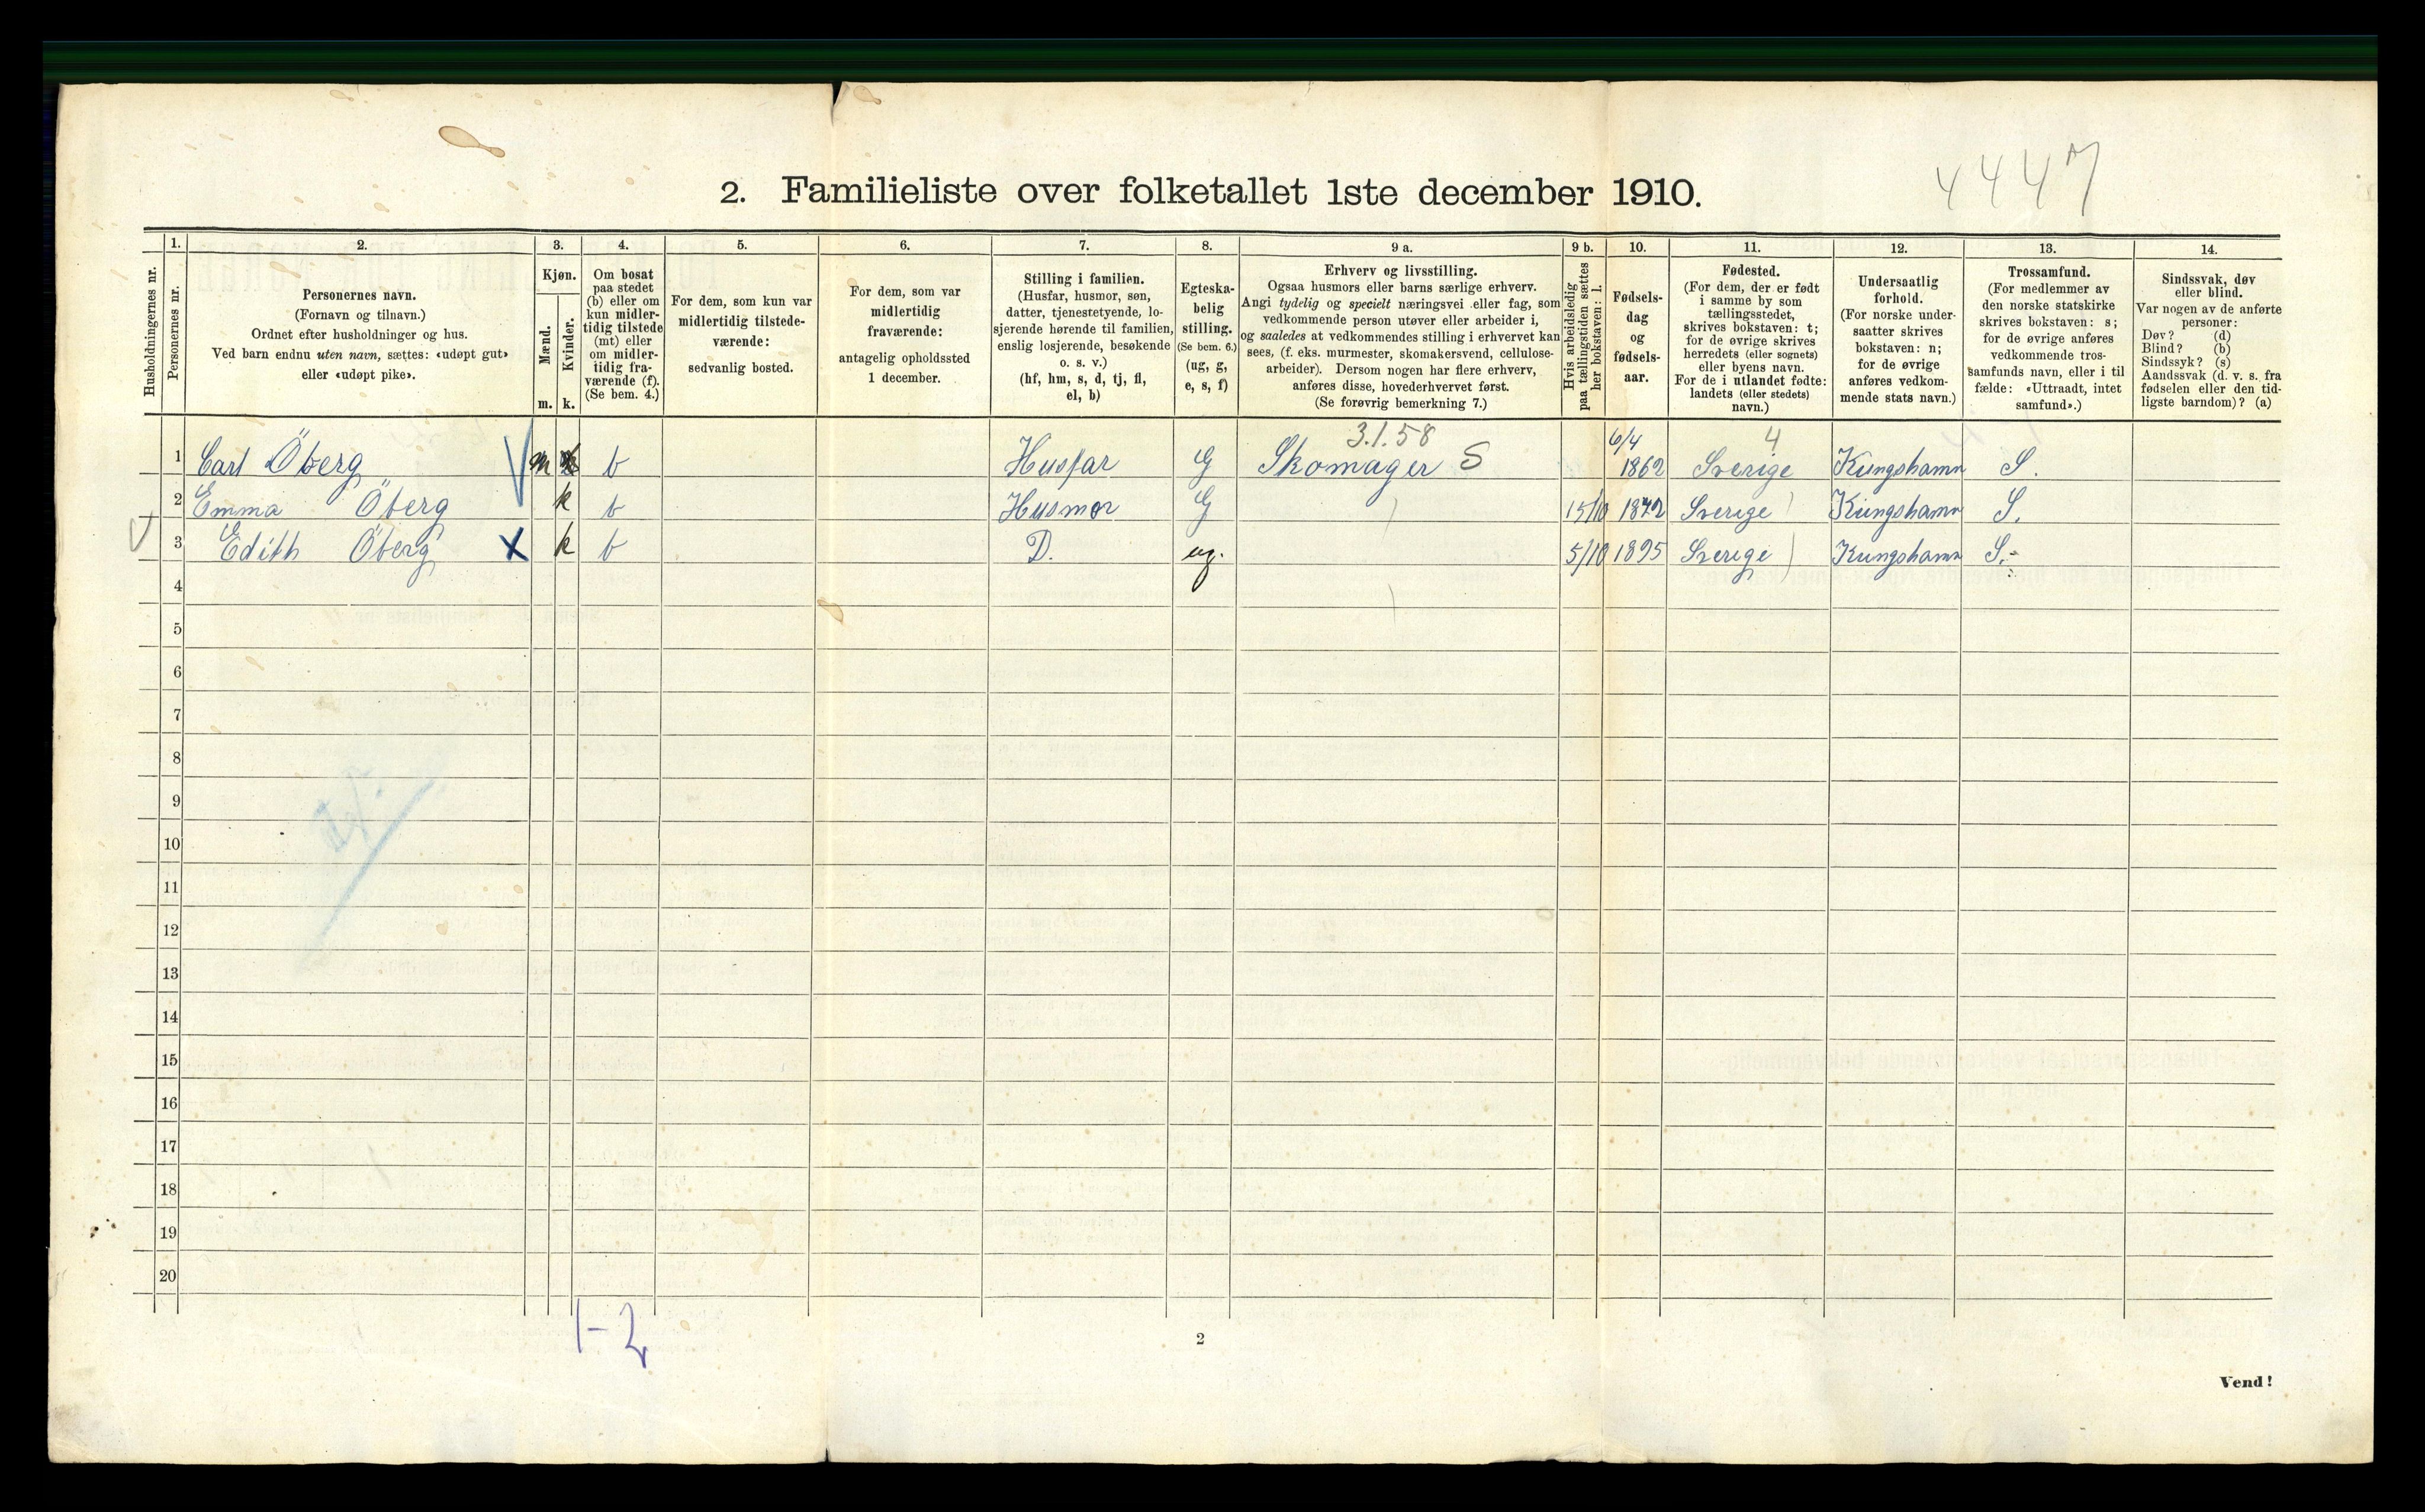 4447
2. Familieliste over folketallet 1ste december 1910.
Husholdningernes nr.
1.
Personernes nr.
2.
Personernes navn.
(Fornavn og tilnavn.)
Ordnet efter husholdninger og hus.
Ved barn endnu uten navn, sættes: «udøpt gut»
eller «udøpt pike».
3.
Kjøn.
Mænd.
m.
Kvinder.
k.
4.
Om bosat
paa stedet
(b) eller om
kun midler-
tidig tilstede
(mt) eller
om midler-
tidig fra-
værende (f).
(Se bem. 4.)
5.
For dem, som kun var
midlertidig tilstede-
værende:
sedvanlig bosted.
6.
For dem, som var
midlertidig
fraværende:
antagelig opholdssted
1 december.
7.
Stilling i familien.
(Husfar, husmor, søn,
datter, tjenestetyende, lo-
sjerende hørende til familien,
enslig losjerende, besøkende
o. s. v.)
(hf, hm, s, d, tj, fl,
el, b)
8.
Egteska-
belig
stilling.
(Se bem. 6.)
(ug, g,
e, s, f)
9 a.
Erhverv og livsstilling.
Ogsaa husmors eller barns særlige erhverv.
Angi tydelig og specielt næringsvei eller fag, som
vedkommende person utøver eller arbeider i,
og saaledes at vedkommendes stilling i erhvervet kan
sees, (f. eks. murmester, skomakersvend, cellulose-
arbeider). Dersom nogen har flere erhverv,
anføres disse, hovederhvervet først.
(Se forøvrig bemerkning 7.)
9 b.
Hvis arbeidsledig
paa tællingstiden sættes
her bokstaven: l.
10.
Fødsels-
dag
og
fødsels-
aar.
11.
Fødested.
(For dem, der er født
i samme by som
tællingsstedet,
skrives bokstaven: t;
for de øvrige skrives
herredets (eller sognets)
eller byens navn.
For de i utlandet fødte:
landets (eller stedets)
navn.)
12.
Undersaatlig
forhold.
(For norske under-
saatter skrives
bokstaven: n;
for de øvrige
anføres vedkom-
mende stats navn.)
13.
Trossamfund.
(For medlemmer av
den norske statskirke
skrives bokstaven: s;
for de øvrige anføres
vedkommende tros-
samfunds navn, eller i til
fælde: «Uttraadt, intet
samfund».)
14.
Sindssvak, døv
eller blind.
Var nogen av de anførte
personer:
Døv? (d)
Blind? (b)
Sindssyk? (s)
Aandssvak (d. v. s. fra
fødselen eller den tid-
ligste barndom)? (a)
3.1.58 6/4 4
1 Carl Öberg m b Husfar G Skomager S 1862 Sverige Kungshamn S.
2 Emma Öberg k b Husmor G 15/10 1872 Sverige Kungshamn S.
3 Edith Öberg X k b D. ug. 5/10 1895 Sverige Kungshamn S.
4
5
6
7
8
9
10
11
12
13
14
15
16
17
18
19
20
1-2
2
Vend!